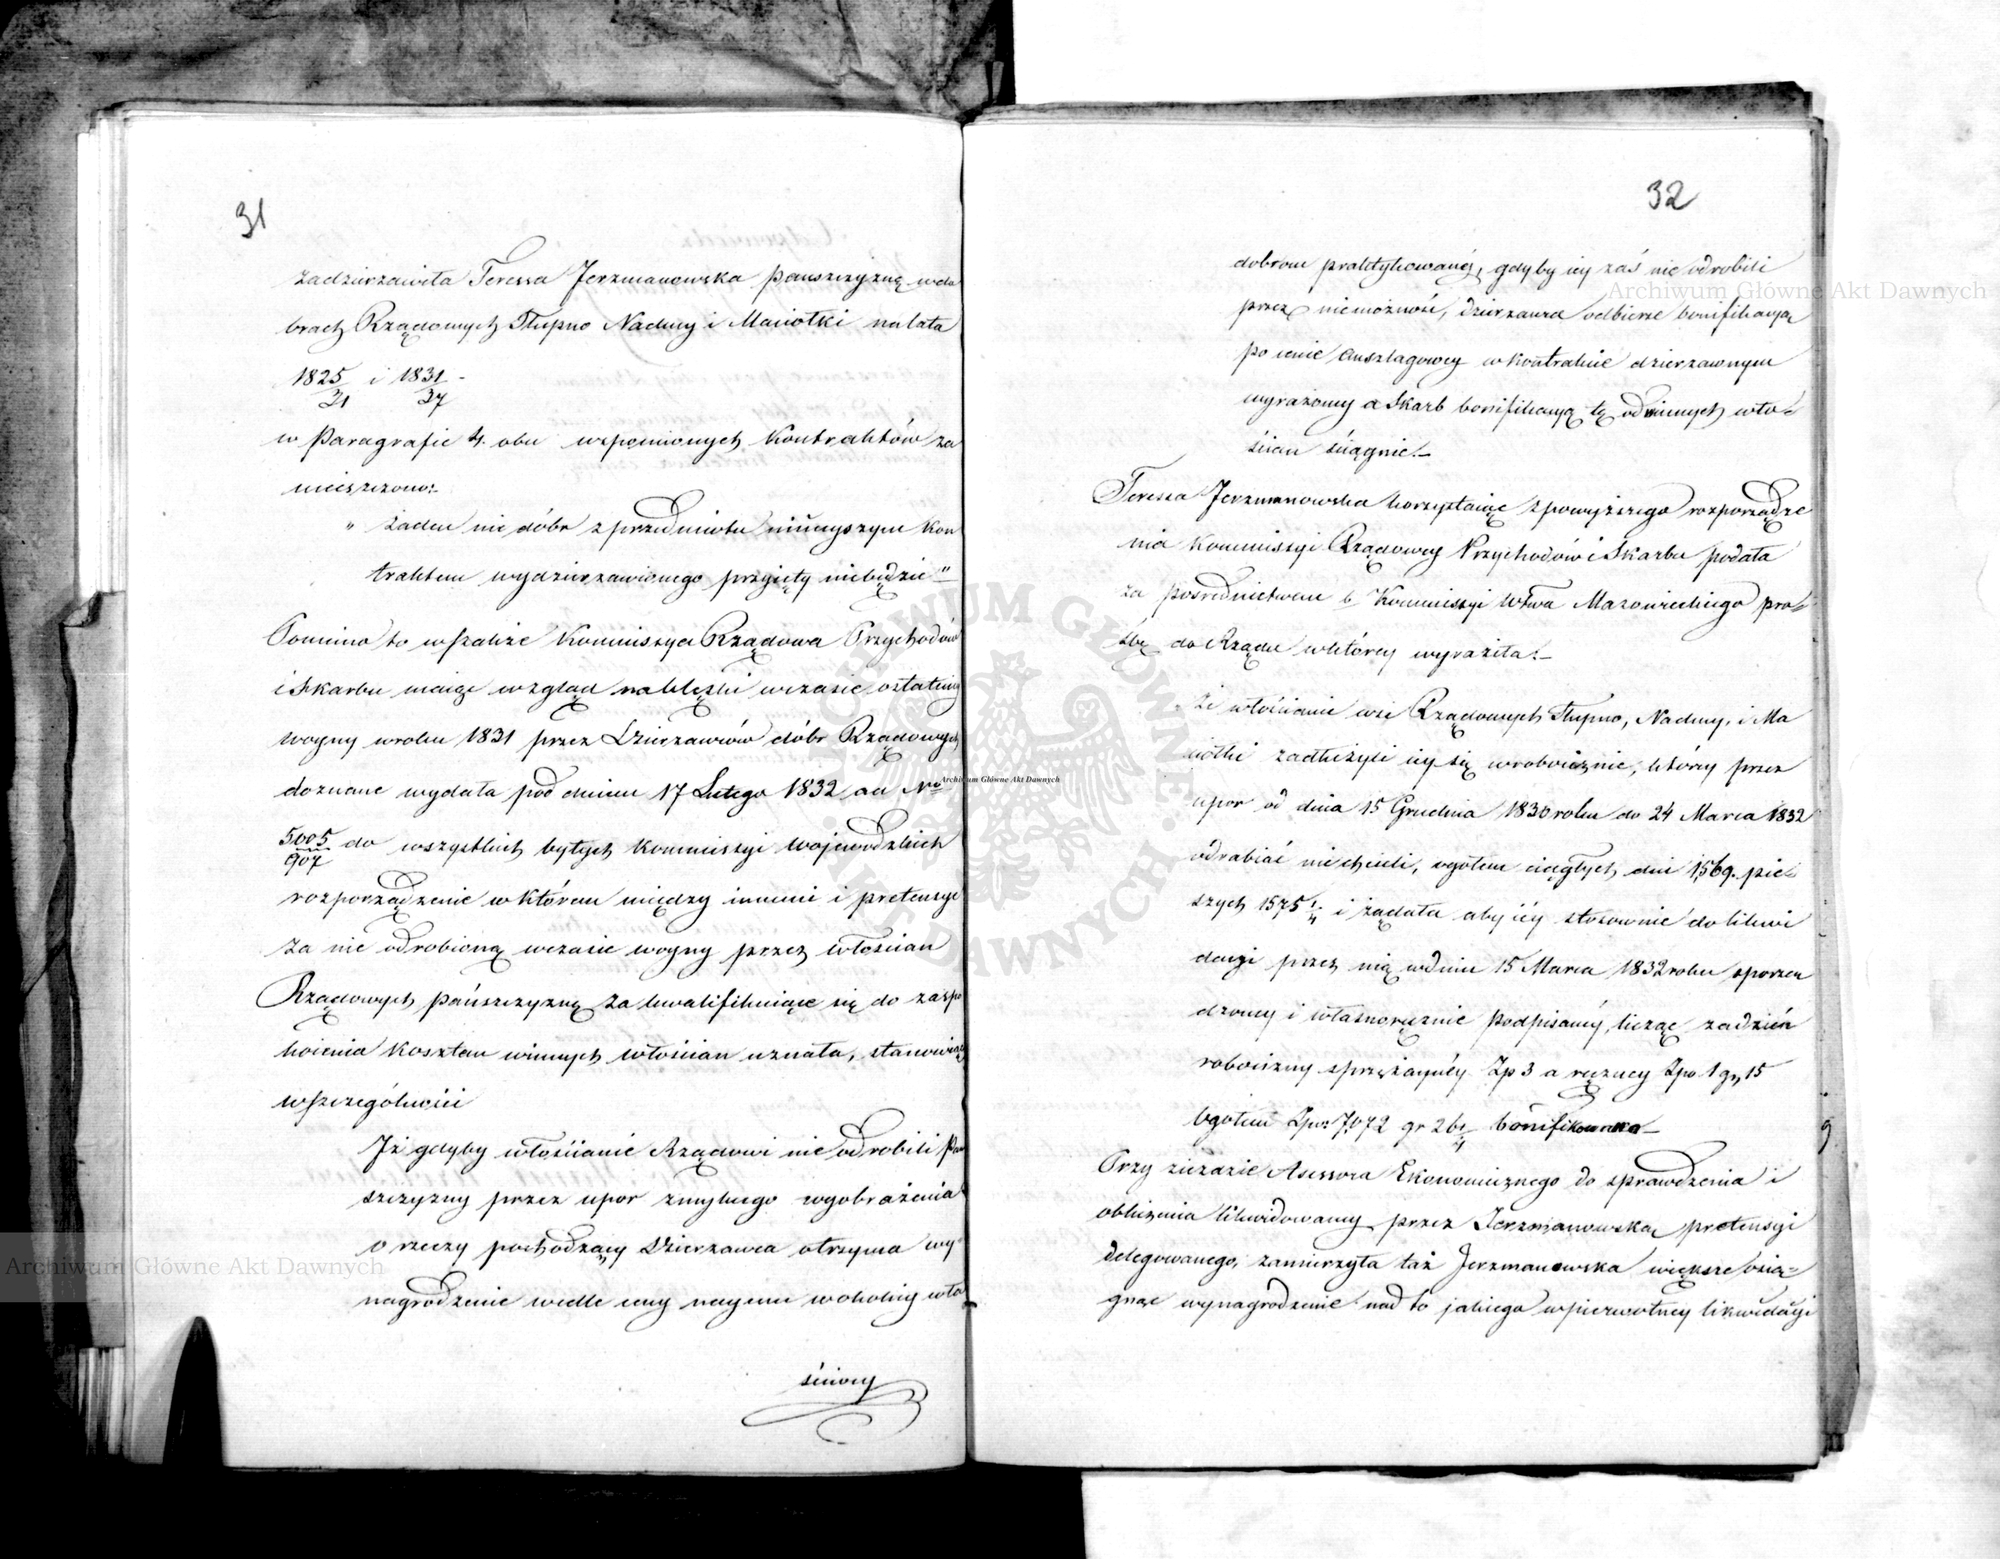 31
zadzierzawiła Teressa Jerzmanowska Pańszczyznę wdo
brach Rządowych Słupno Nadwy i Maciołki na lata
1825/31 i 1831/37 -
w Paragrafie 4. obu wspomionych Kontraktów za
mieszczono:-
" Żaden nie dóbr z przedmiotu niniejszym Kon
traktem wydzierzawionego przyięty niebędzie"
Pomimo to wszakże Kommissya Rządowa Przychodów
i Skarbu maiąc wzgląd na klęski wczasie ostatniey
woyny wroku 1831 przez Dzierzawców dóbr Rządowych
doznane wydała pod dniem 17 Lutego 1832 ad Nro
5005/907 do wszystkich byłych Kommissyi Wojewodzkich
rozporządzenie w którem między innemi i pretensye
za nie odrobioną wczasie woyny przez Włościan
Rządowych pańszczyznę za kwalifikuiące się do zaspo
koienia kosztem winnych Włościan uznała, stanowiąc
wszczególności
Iż gdyby włościanie Rządowi nie odrobili Pań
szczyzny przez upor zmylnego wyobrażenia
o rzeczy pochodzący Dzierzawca otrzyma wy=
nagrodzenie wedle ceny naymu w okolicy wło
ściwey
32
dobrom praktykowaney, gdyby iey zaś nie odrobili
przez niemożność, dzierzawca odbierze bonifikacyą
po cenie Anszlagowey w kontrakcie dzierzawnym
wyrażoney a Skarb bonifikacyą tę od winnych wło=
ścian ściągnie.-
Teressa Jerzmanowska korzystaiąc z powyższego rozporządze
nia Kommissyi Rządowey Przychodów i Skarbu podała
za pośrednictwem b. Kommissyi Wtwa Mazowieckiego proź
bę do Rządu wktórey wyraziła:-
Że włościanie wsi Rządowych Słupno, Nadwy, i Ma
ciołki zadłużyli iey się wrobociznie, którey przez
upor od dnia 15 Grudnia 1830 roku do 24 Marca 1832
odrabiać nie chcieli, ogołem ciągłych dni 1,569. pie=
szych 1575 1/4 i żądała aby iéy stosownie do likwi
dacyi przez nią w dniu 15 Marca 1832 roku sporzą
dzoney i własnoręcznie podpisanéy, licząc za dzień
robocizny sprzężaynéy Zp 3 a ręczney Zpo 1 gr 15
ogołem Zpo: 7,072 gr 26 1/4 bonifikowano-
Przy zieździe Asessora Ekonomicznego do sprawdzenia i
obliczenia likwidowaney przez Jerzmanowską pretensyi
delegowanego, zamierzyła taż Jerzmanowska większe osią=
gnąć wynagrodzenie nad to jakiego wpierwotney likwidacyi
Archiwum Główne Akt Dawnych
Archiwum Główne Akt Dawnych
Archiwum Główne Akt Dawnych
ARCHIWUM GŁÓWNE AKT DAWNYCH